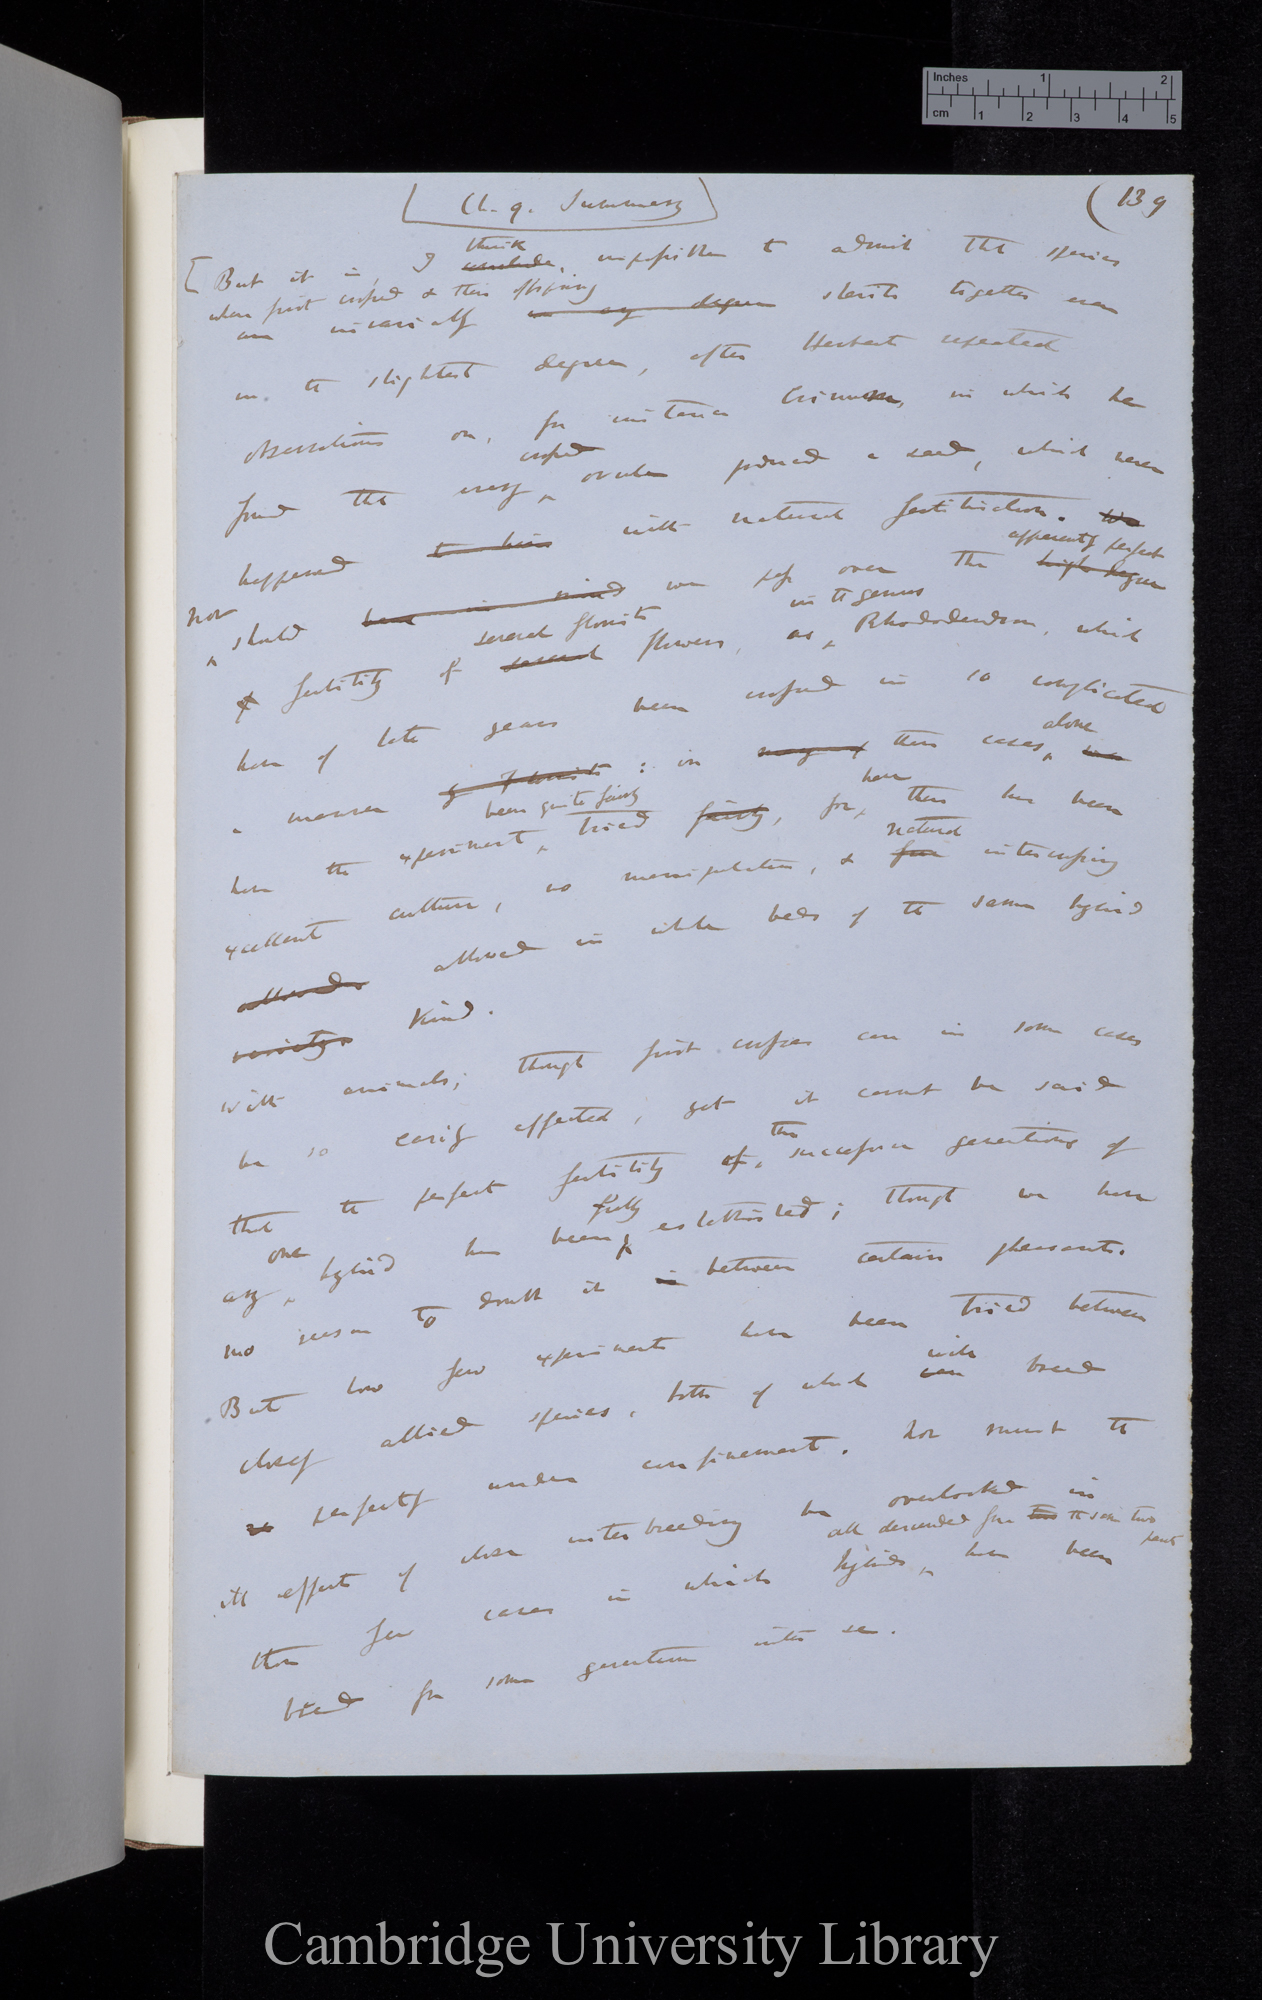 Inches 1 2
cm 1 2 3 4 5
Ch. 9. Summary
(139
think
[But it is, I conclude, impossible to admit that species
when first crossed & their offspring
are invariably in any degree sterile together even
in the slightest degree, after Herbert repeated
observations on, for instance Crinum, in which he
crossed
found that every ovule produced a seed, which never
happened to him with natural fertilisation. We
apparently perfect
Nor should bear in mind we pass over the high degree
several florists in the genus
fertility of several flowers, as Rhododendron, which
have of late years been crossed in so complicated
alone
a manner by florists: in many of these cases
been quite fairly here
have the experiment tried fairly, for, there has been
natural
excellent culture, no manipulation, & free intercrossing
allowed allowed in whole beds of the same hybrid
variety. kind.
With animals; though first crosses can in some cases
be so easily effected, yet it cannot be said
the
that the perfect fertility of successive generations of
one fully
any hybrid has been established; though we have
no reason to doubt it in between certain pheasants.
But how few experiments have been tried between
will
closely allied species, both of which can breed
perfectly under confinement. Nor must the
ill effects of close interbreeding be overlooked in
all descended from the same two
parents
the few cases in which hybrids, have been
bred for some generations inter se.
Cambridge University Library